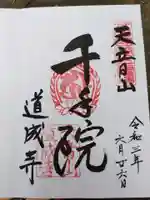 天音山
令和二年
六月廿六日
千手院
道成寺